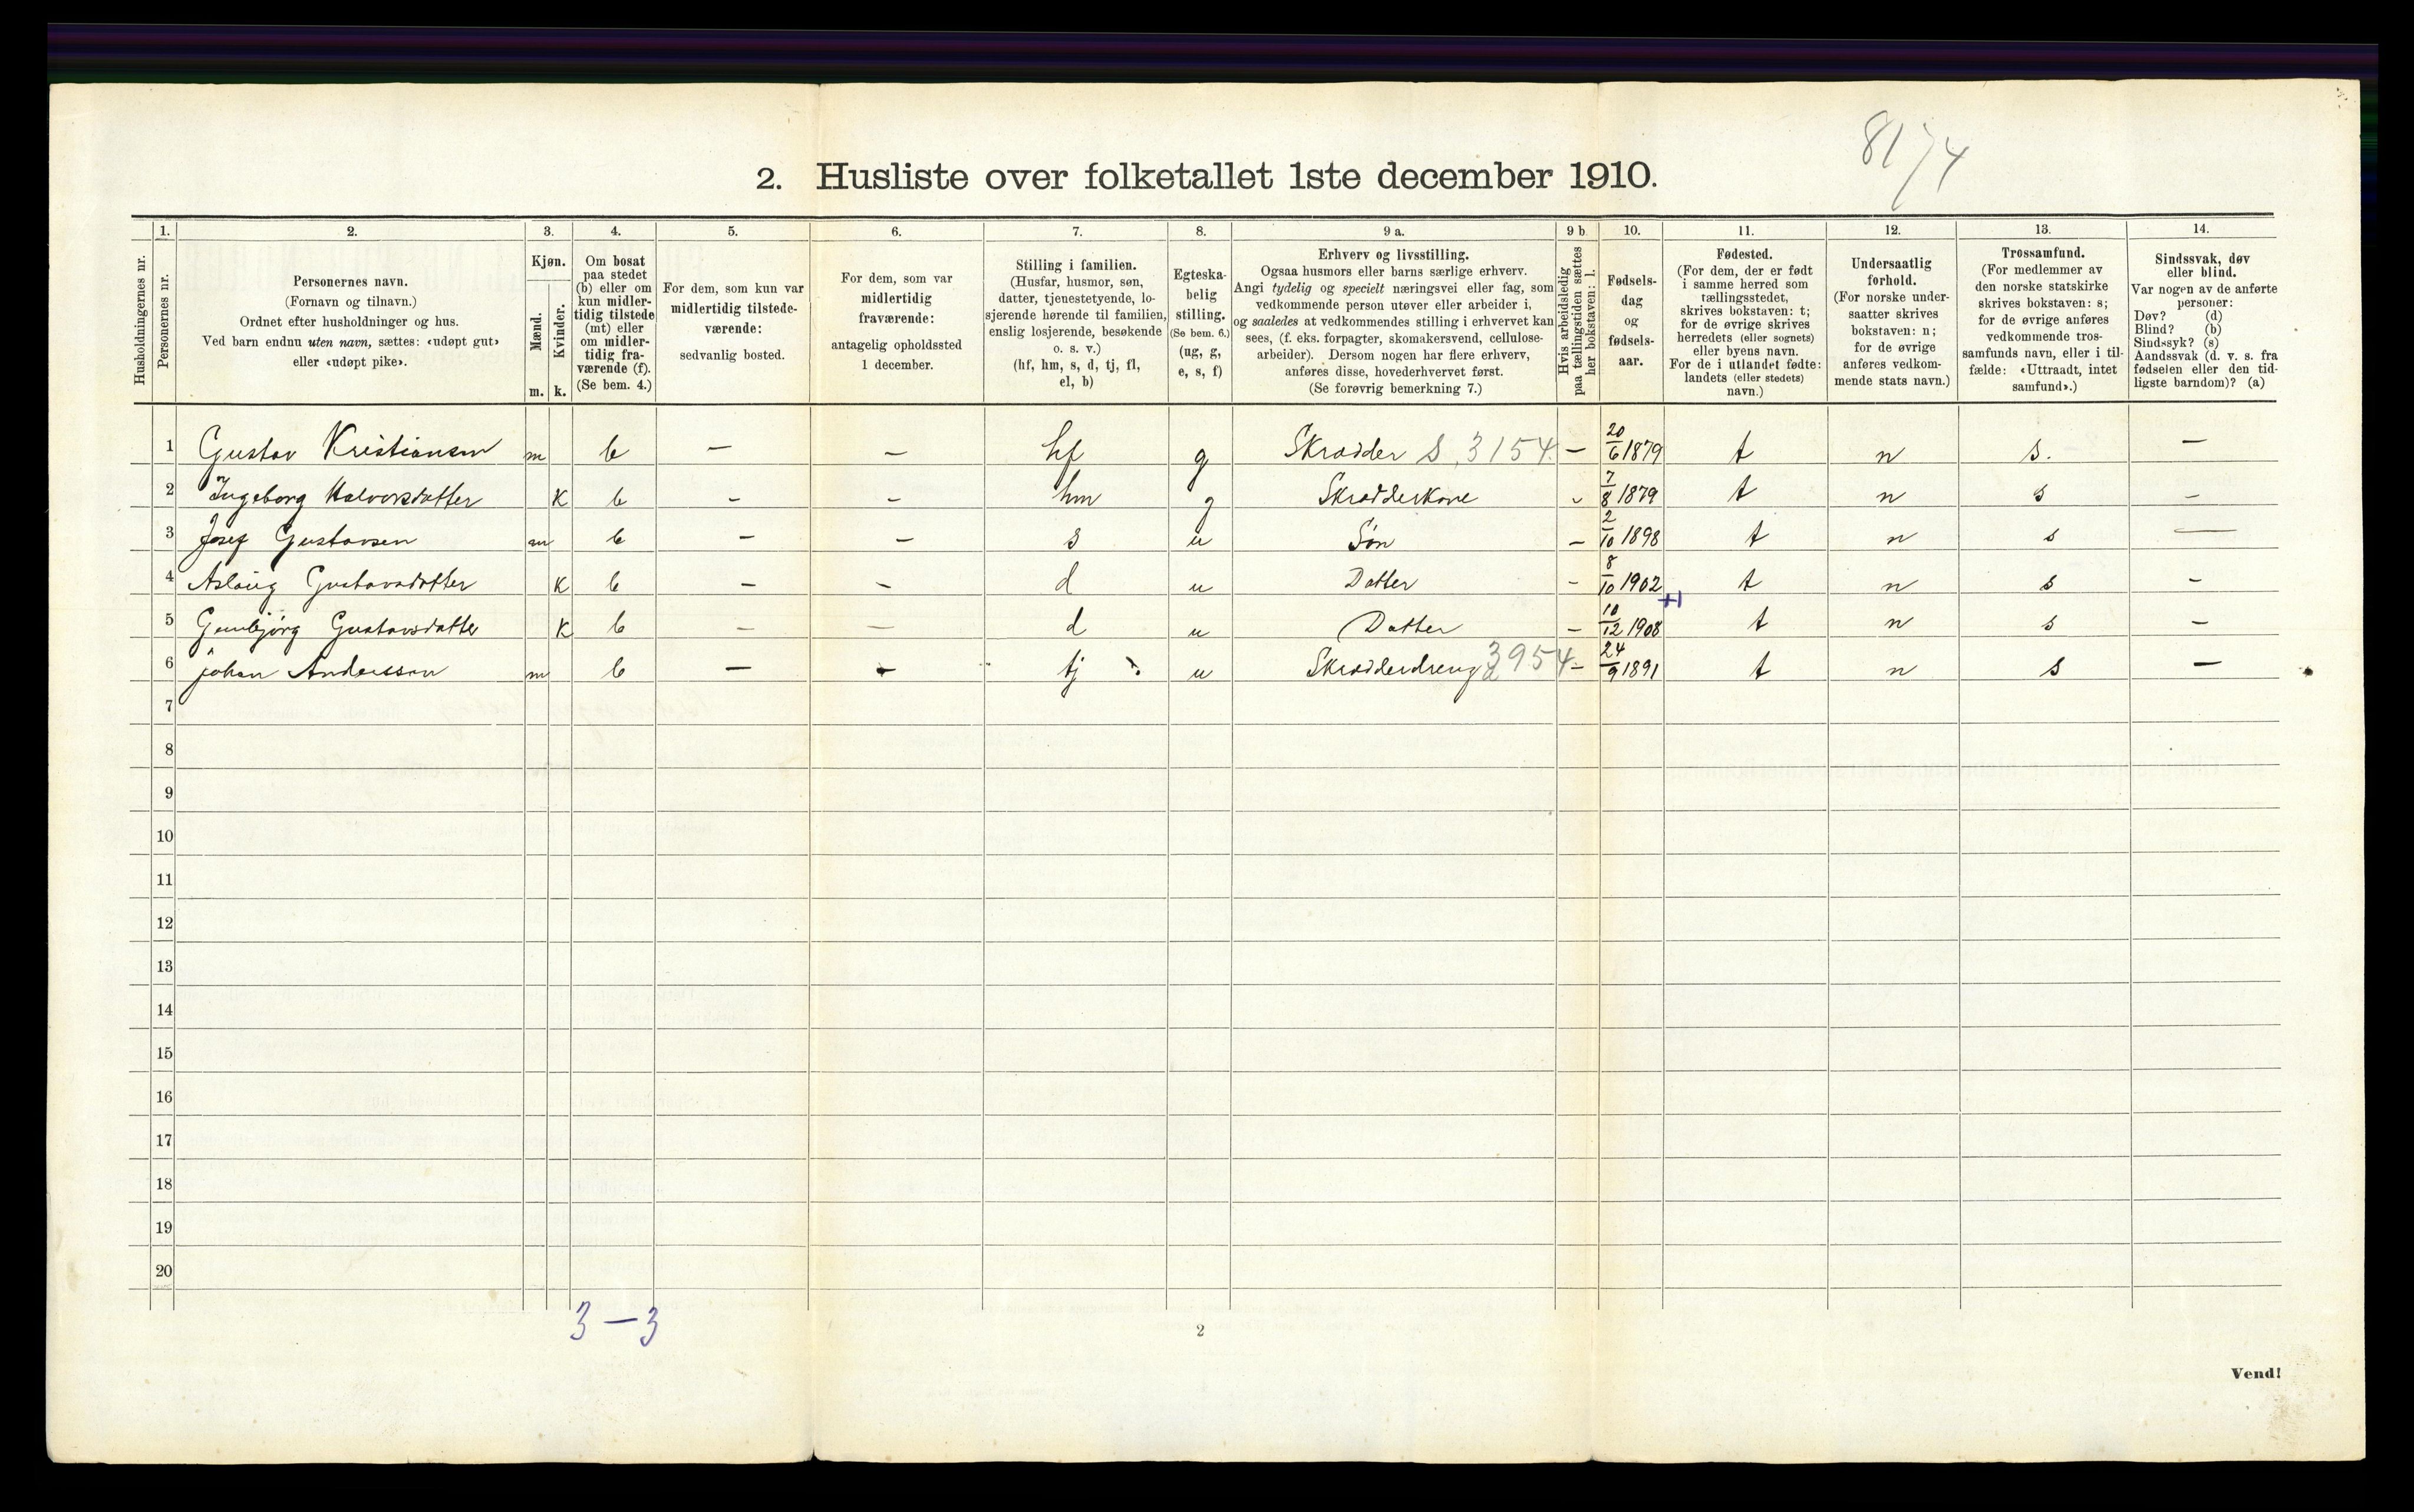 8174
2. Husliste over folketallet 1ste december 1910.
Husholdningernes nr.
1.
Personernes nr.
2.
Personernes navn.
(Fornavn og tilnavn.)
Ordnet efter husholdninger og hus.
Ved barn endnu uten navn, sættes: «udøpt gut»
eller «udøpt pike».
3.
Kjøn.
Mænd.
Kvinder.
m. k.
4.
Om bosat
paa stedet
(b) eller om
kun midler-
tidig tilstede
(mt) eller
om midler-
tidig fra-
værende (f).
(Se bem. 4.)
5.
For dem, som kun var
midlertidig tilstede-
værende:
sedvanlig bosted.
6.
For dem, som var
midlertidig
fraværende:
antagelig opholdssted
1 december.
7.
Stilling i familien.
(Husfar, husmor, søn,
datter, tjenestetyende, lo-
sjerende hørende til familien,
enslig losjerende, besøkende
o. s. v.)
(hf, hm, s, d, tj, fl,
el, b)
8.
Egteska-
belig
stilling.
(Se bem. 6.)
(ug, g,
e, s, f)
9 a.
Erhverv og livsstilling.
Ogsaa husmors eller barns særlige erhverv.
Angi tydelig og specielt næringsvei eller fag, som
vedkommende person utøver eller arbeider i,
og saaledes at vedkommendes stilling i erhvervet kan
sees, (f. eks. forpagter, skomakersvend, cellulose-
arbeider). Dersom nogen har flere erhverv,
anføres disse, hovederhvervet først.
(Se forøvrig bemerkning 7.)
9 b
Hvis arbeidsledig
paa tællingstiden sættes
her bokstaven: l.
10.
Fødsels-
dag
og
fødsels-
aar.
11.
Fødested.
(For dem, der er født
i samme herred som
tællingsstedet,
skrives bokstaven: t;
for de øvrige skrives
herredets (eller sognets)
eller byens navn.
For de i utlandet fødte:
landets (eller stedets)
navn.)
12.
Undersaatlig
forhold.
(For norske under-
saatter skrives
bokstaven: n;
for de øvrige
anføres vedkom-
mende stats navn.)
13.
Trossamfund.
(For medlemmer av
den norske statskirke
skrives bokstaven: s;
for de øvrige anføres
vedkommende tros-
samfunds navn, eller i til-
fælde: «Uttraadt, intet
samfund».)
14.
Sindssvak, døv
eller blind.
Var nogen av de anførte
personer:
Døv? (d)
Blind? (b)
Sindssyk? (s)
Aandssvak (d. v. s. fra
fødselen eller den tid-
ligste barndom)? (a)
1 Gustav Kristiansen m b — — hf g Skrædder S 3154. — 20/6 1879 t n s. —
2 Ingeborg Halvorsdatter K b — — hm g Skrædderkone - 7/8 1879 t n s —
3 Josef Gustavsen m b — — s u Søn — 2/10 1898 t n s —
4 Aslaug Gustavsdatter K b — — d u Datter - 8/10 1902 t n s —
5 Gunbjörg Gustavsdatter K b — — d u Datter — 10/12 1908 t n s —
6 johan Anderssen m b — — tj u Skrædderdreng 3954 — 24/9 1891 t n s —
7
8
9
10
11
12
13
14
15
16
17
18
19
20
3 — 3
2
Vend!